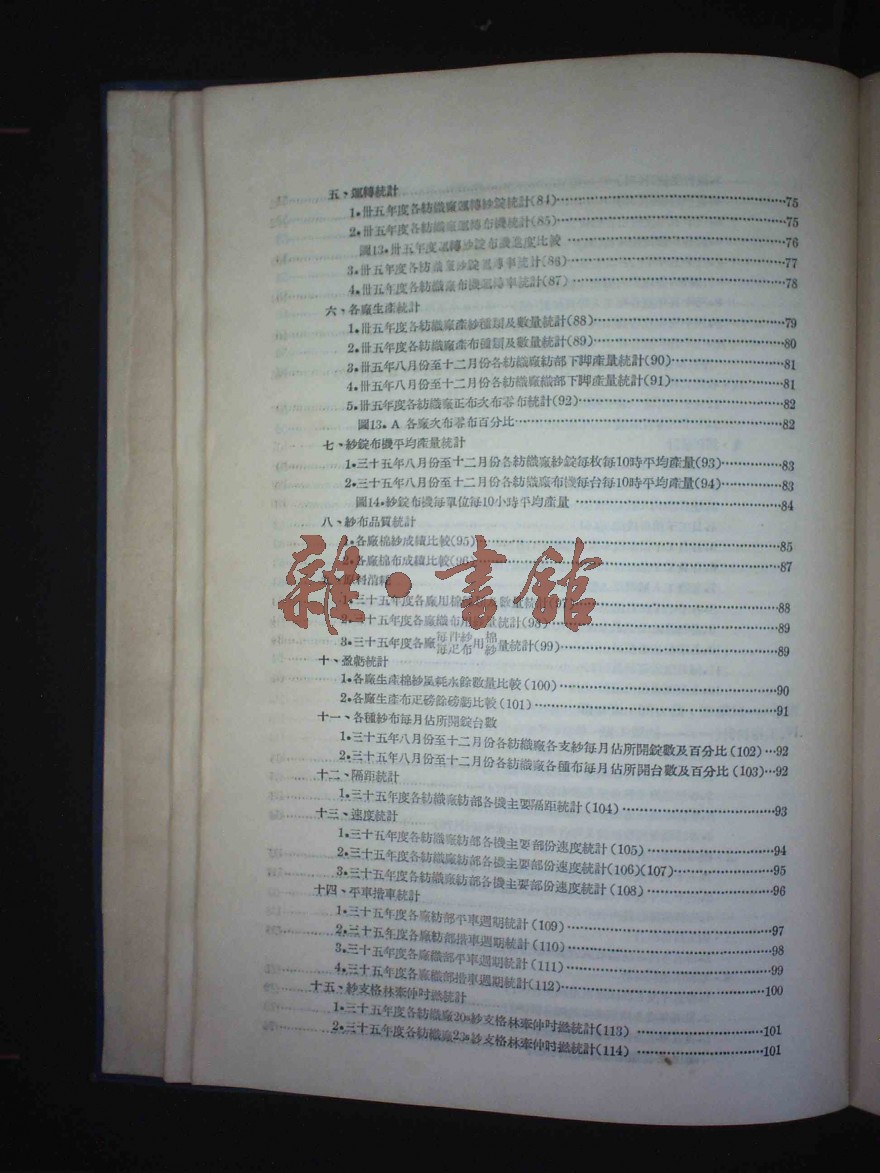 五、運轉統計
1.卅五年度各紡織廠運轉紗錠統計(84)……75
2.卅五年度各紡織廠運轉布機統計(85)……75
圖13.卅五年度運轉紗錠布機進度比較……76
3.卅五年度各紡織廠紗錠運轉率統計(86)……77
4.卅五年度各紡織廠布機運轉率統計(87)……78
六、各廠生產統計
1.卅五年度各紡織廠產紗種類及數量統計(88)……79
2.卅五年度各紡織廠產布種類及數量統計(89)……80
3.卅五年八月份至十二月份各紡織廠紡部下脚產量統計(90)……81
4.卅五年八月份至十二月份各紡織廠織部下脚產量統計(91)……81
5.卅五年度各紡織廠正布次布零布統計(92)……82
圖13.A 各廠次布零布百分比……82
七、紗錠布機平均產量統計
1.三十五年八月份至十二月份各紡織廠紗錠每枚每10時平均產量(93)……83
2.三十五年八月份至十二月份各紡織廠布機每台每10時平均產量(94)……83
圖14.紗錠布機每單位每10小時平均產量……84
八、紗布品質統計
1.各廠棉紗成績比較(95)……85
2.各廠棉布成績比較(96……87
雜·書館
九、原料消耗
1.三十五年度各廠用棉 數量統計(97)……88
2.三十五年度各廠織布用 量統計(98)……89
3.三十五年度各廠每件紗每疋布用棉紗量統計(99)……89
十、盈虧統計
1.各廠生產棉紗風耗水餘數量比較(100)……90
2.各廠生產布疋磅餘磅虧比較(101)……91
十一、各種紗布每月佔所開錠台數
1.三十五年八月份至十二月份各紡織廠各支紗每月佔所開錠數及百分比(102)…92
2.三十五年八月份至十二月份各紡織廠各種布每月佔所開台數及百分比(103)…92
十二、隔距統計
1.三十五年度各紡織廠紡部各機主要隔距統計(104)……93
十三、速度統計
1.三十五年度各紡織廠紡部各機主要部份速度統計(105)……94
2.三十五年度各紡織廠紡部各機主要部份速度統計(106)(107)……95
3.三十五年度各紡織廠紡部各機主要部份速度統計(108)……96
十四、平車揩車統計
1.三十五年度各廠紡部平車週期統計(109)……97
2.三十五年度各廠紡部揩車週期統計(110)……98
3.三十五年度各廠織部平車週期統計(111)……99
4.三十五年度各廠織部揩車週期統計(112)……100
十五、紗支格林牽伸吋撚統計
1.三十五年度各紡織廠20s紗支格林牽伸吋撚統計(113)……101
2.三十五年度各紡織廠23s紗支格林牽伸吋撚統計(114)……101